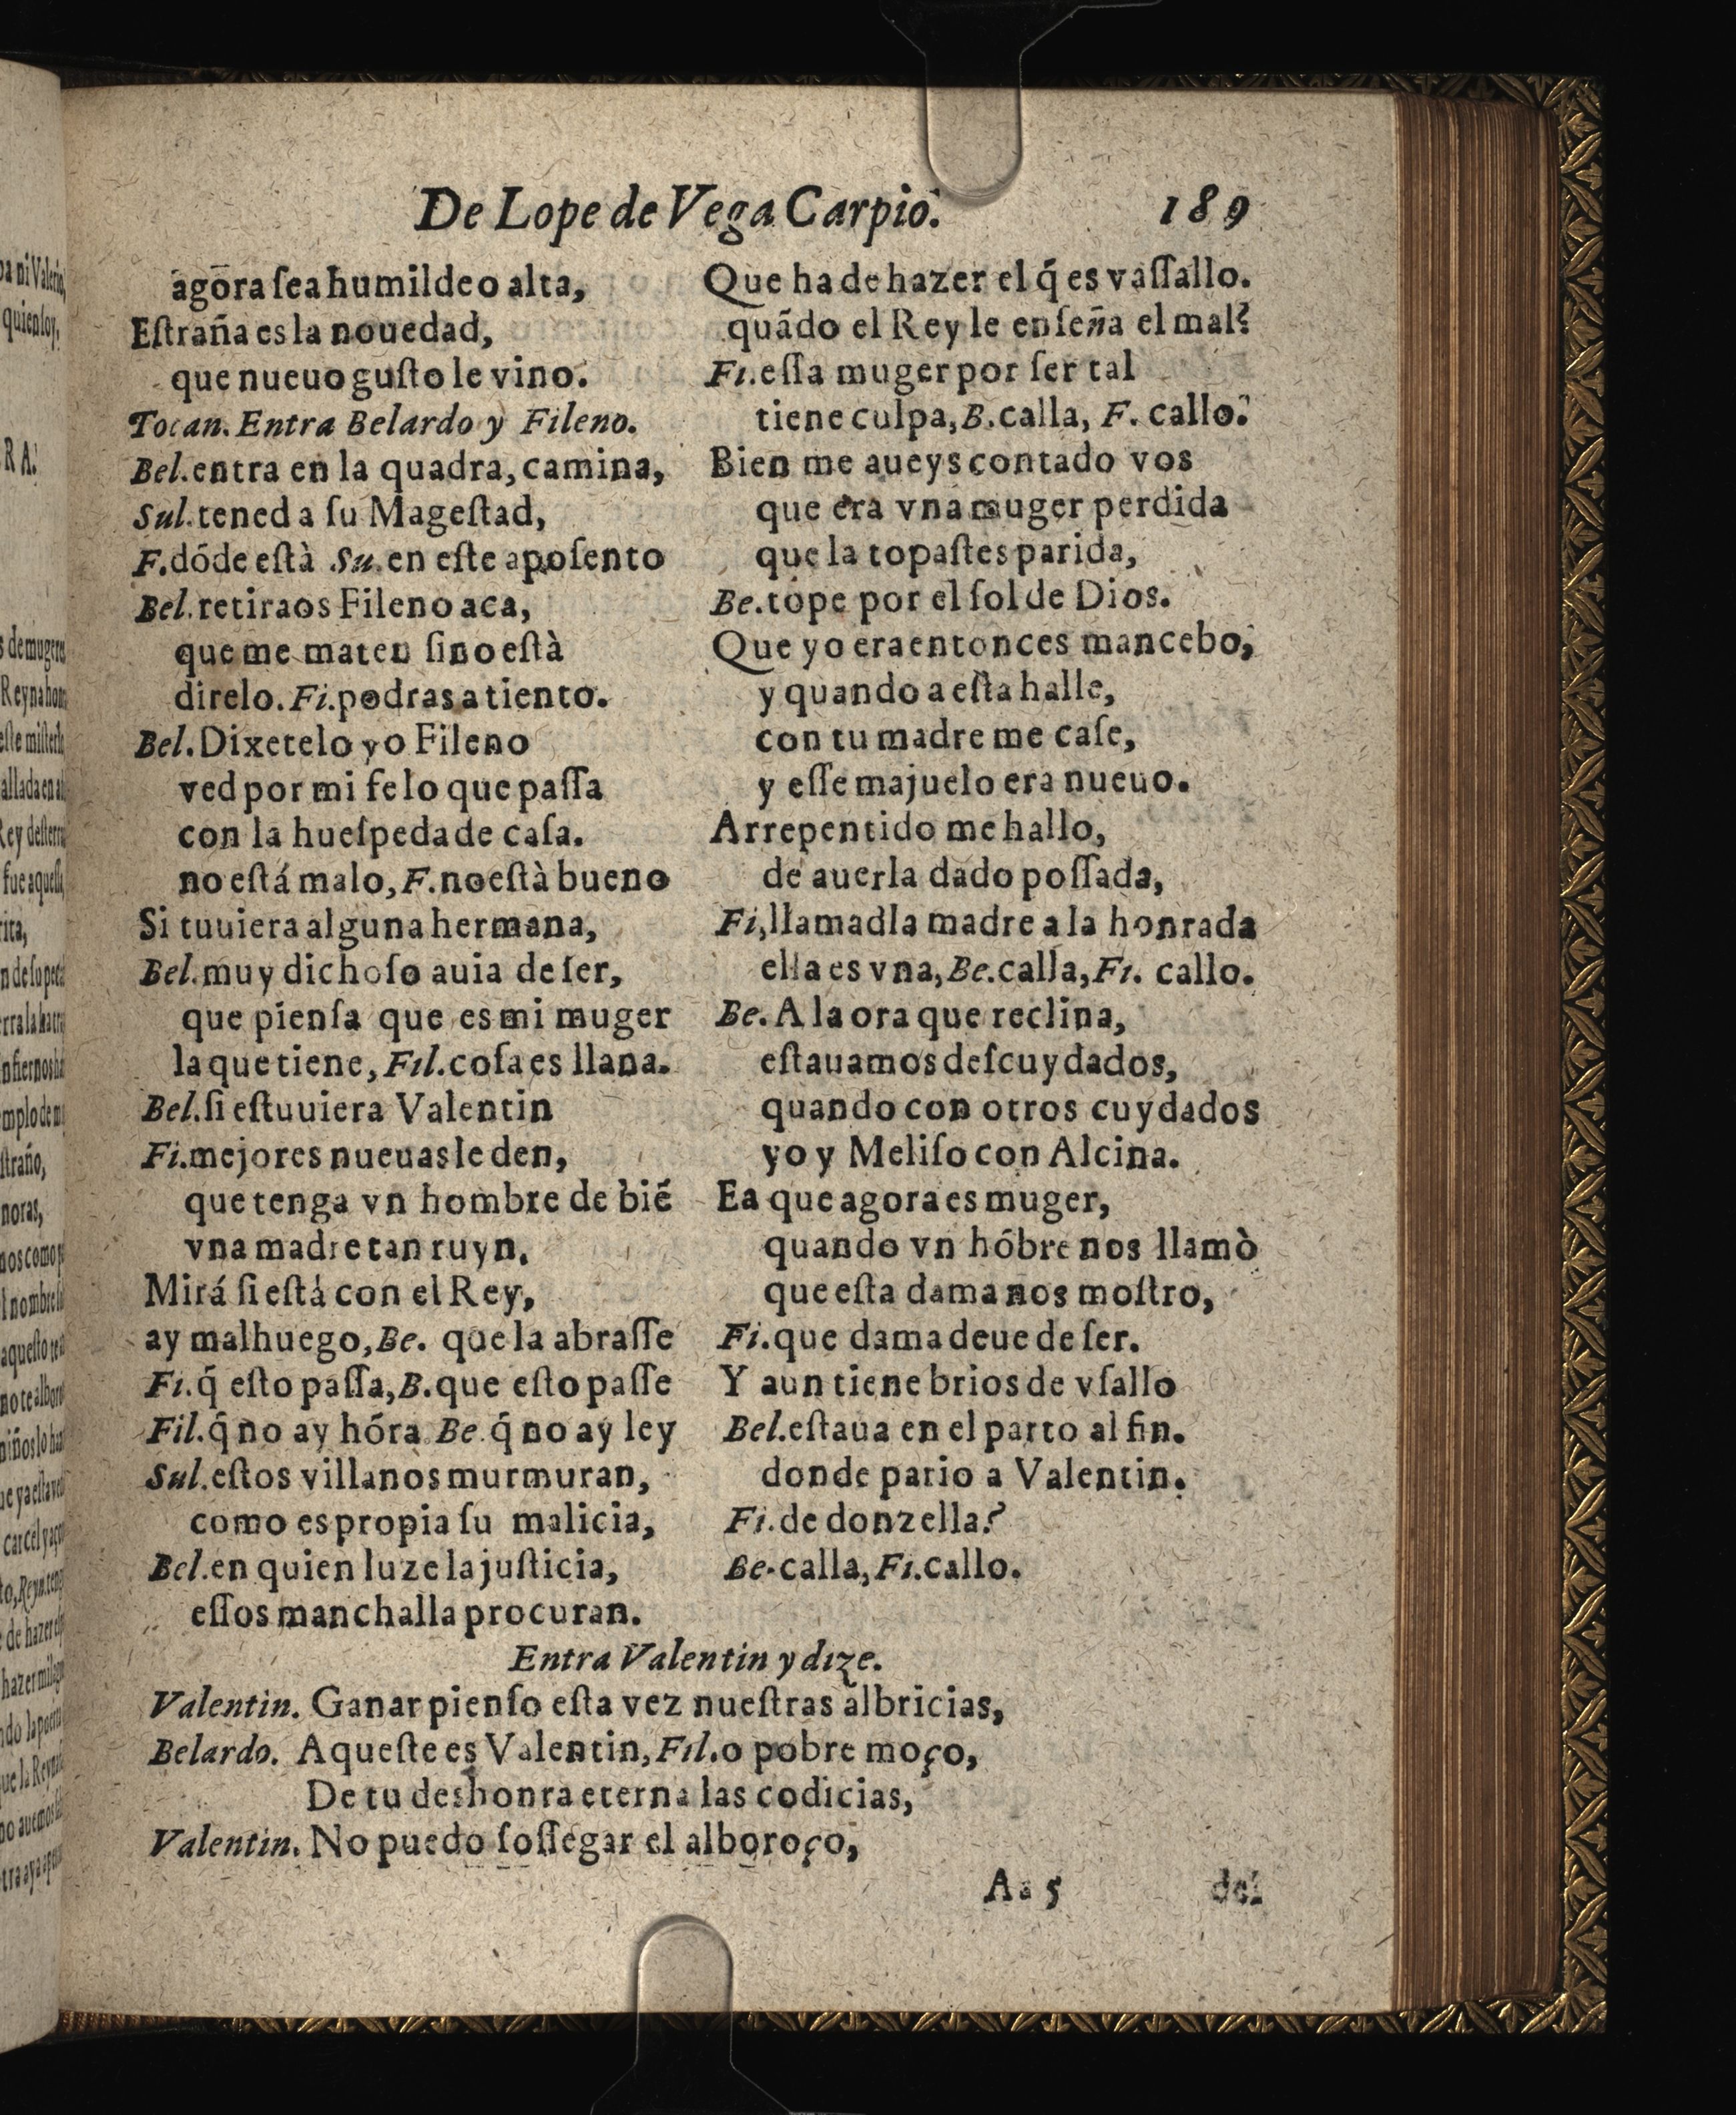 De Lope de Vega Carpio. 189
agora sea humilde o alta,
Estraña es la nouedad,
que nueuo gusto le vino.
Tocan. Entra Belardo y Fileno.
Bel. entra en la quadra, camina,
Sul. tened a su Magestad,
F. dóde està Su. en este aposento
Bel. retiraos Fileno aca,
que me maten sino està
direlo. Fi. podras a tiento.
Bel. Dixetelo yo Fileno
ved por mi fe lo que passa
con la huespeda de casa.
no está malo, F. no està bueno
Si tuuiera alguna hermana,
Bel. muy dichoso auia de ser,
que piensa que es mi muger
la que tiene, Fil. cosa es llana.
Bel. si estuuiera Valentin
Fi. mejores nueuas le den,
que tenga vn hombre de bié
vna madre tan ruyn.
Mirá si está con el Rey,
ay mal huego, Be. que la abrasse
Fi. q́ esto passa, B. que esto passe
Fil. q́ no ay hóra Be. q́ no ay ley
Sul. estos villanos murmuran,
como es propia su malicia,
Bel. en quien luze la justicia,
essos manchalla procuran.
Que ha de hazer el q́ es vassallo.
quãdo el Rey le enseña el mal?
Fi. essa muger por ser tal
tiene culpa, B. calla, F. callo.
Bien me aueys contado vos
que era vna muger perdida
que la topastes parida,
Be. tope por el sol de Dios.
Que yo era entonces mancebo,
y quando a esta halle,
con tu madre me case,
y esse majuelo era nueuo.
Arrepentido me hallo,
de auerla dado possada,
Fi, llamadla madre a la honrada
ella es vna, Be. calla, Fi. callo.
Be. A la ora que reclina,
estauamos descuydados,
quando con otros cuydados
yo y Meliso con Alcina.
Ea que agora es muger,
quando vn hóbre nos llamò
que esta dama nos mostro,
Fi. que dama deue de ser.
Y aun tiene brios de vsallo
Bel. estaua en el parto al fin.
donde pario a Valentin.
Fi. de donzella?
Be. calla, Fi. callo.
Entra Valentin y dize.
Valentin. Ganar pienso esta vez nuestras albricias,
Belardo. Aqueste es Valentin, Fil. o pobre moço,
De tu deshonra eterna las codicias,
Valentin. No puedo sossegar el alboroço,
Aa 5 del